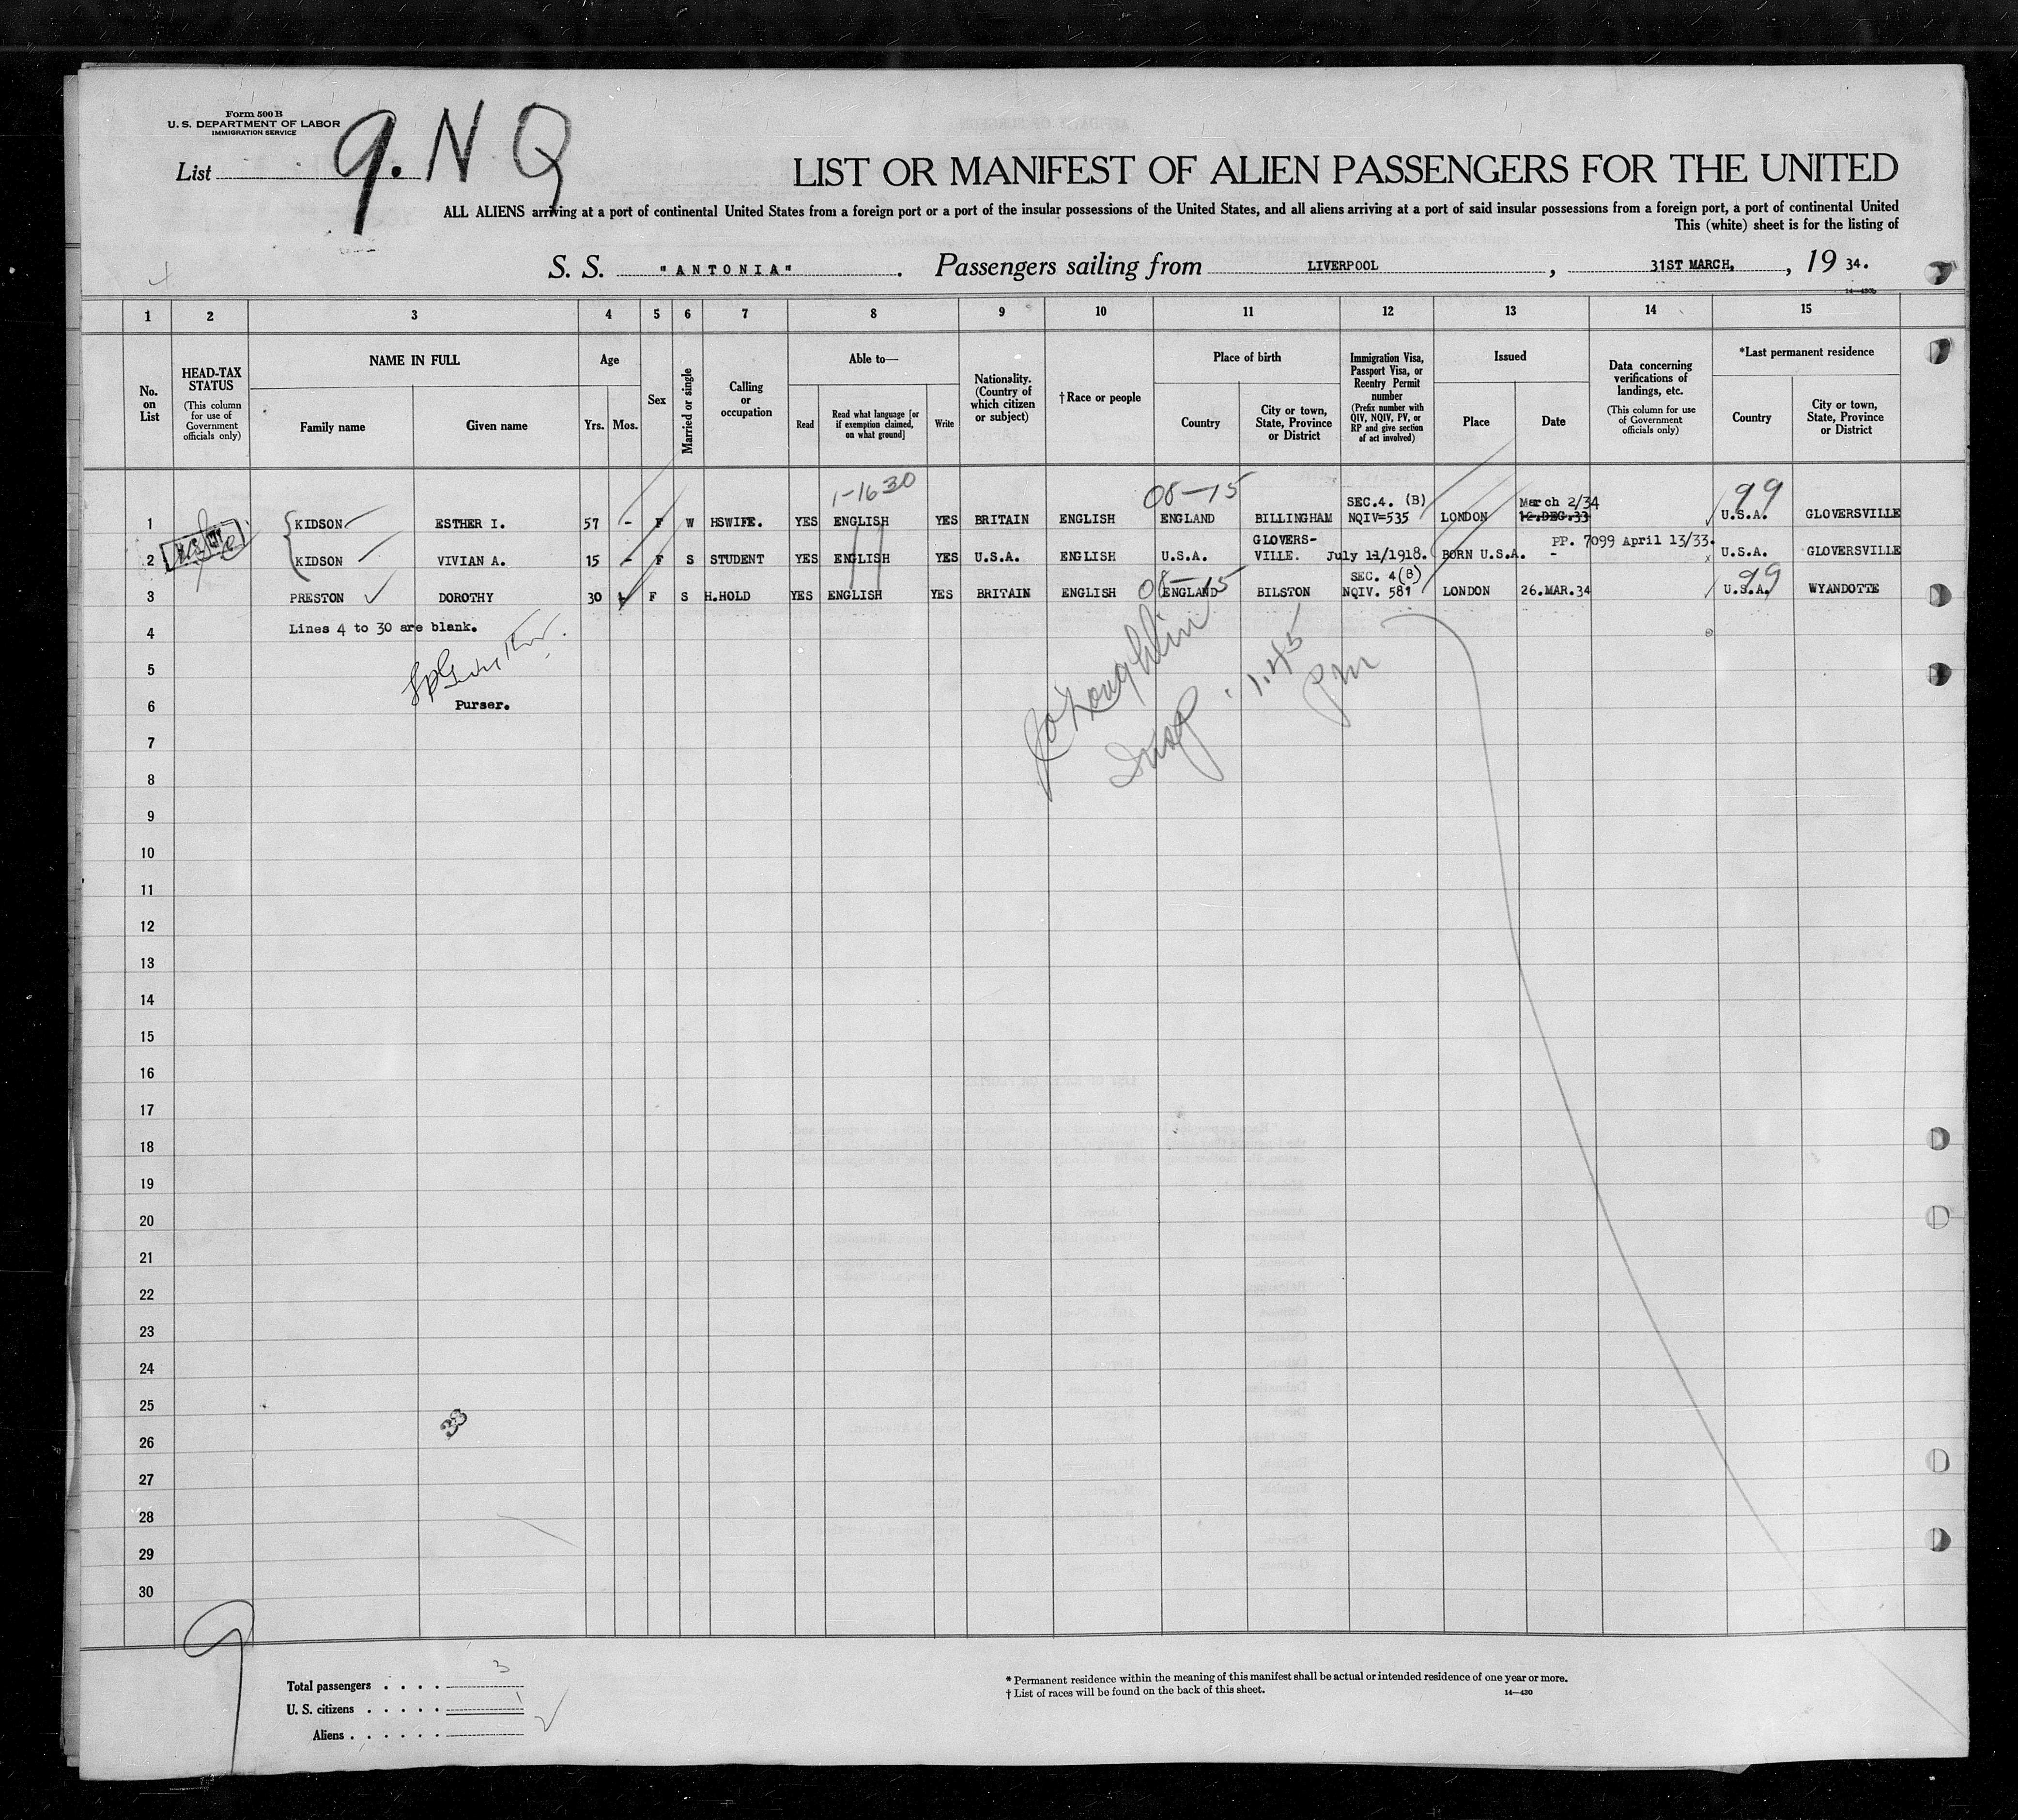 Form 500 B
U. S. DEPARTMENT OF LABOR
IMMIGRATION SERVICE
List 9. N Q
LIST OR MANIFEST OF ALIEN PASSENGERS FOR THE UNITED
ALL ALIENS arriving at a port of continental United States from a foreign port or a port of the insular possessions of the United States, and all aliens arriving at a port of said insular possessions from a foreign port, a port of continental United
This (white) sheet is for the listing of
S. S. "ANTONIA". Passengers sailing from LIVERPOOL, 31ST MARCH, 19 34.
14—430b
1 2 3 4 5 6 7 8 9 10 11 12 13 14 15
No. on List
HEAD-TAX STATUS (This column for use of Government officials only)
NAME IN FULL
Family name Given name
Age
Yrs. Mos.
Sex
Married or single
Calling or occupation
Able to—
Read
Read what language [or if exemption claimed, on what ground]
Write
Nationality. (Country of which citizen or subject)
†Race or people
Place of birth
Country
City or town, State, Province or District
Immigration Visa, Passport Visa, or Reentry Permit number (Prefix number with QIV, NQIV, PV, or RP and give section of act involved)
Issued
Place Date
Data concerning verifications of landings, etc. (This column for use of Government officials only)
*Last permanent residence
Country
City or town, State, Province or District
1-1630 05-15 SEC.4. (B) March 2/34 99
1 KIDSON ESTHER I. 57 - F W HSWIFE. YES ENGLISH YES BRITAIN ENGLISH ENGLAND BILLINGHAM NQIV=535 LONDON 12.DEC.33 U.S.A. GLOVERSVILLE
GLOVERS- PP. 7099 April 13/33.
2 KIDSON VIVIAN A. 15 - F S STUDENT YES ENGLISH YES U.S.A. ENGLISH U.S.A. VILLE. July 11/1918. BORN U.S.A. - U.S.A. GLOVERSVILLE
05-15 SEC. 4(B) 99
3 PRESTON DOROTHY 30 F S H.HOLD YES ENGLISH YES BRITAIN ENGLISH ENGLAND BILSTON NQIV. 581 LONDON 26.MAR.34 U.S.A. WYANDOTTE
Lines 4 to 30 are blank.
4
5
Purser.
6
JO'Loughlin
Insp. 1.45
pm
7
8
9
10
11
12
13
14
15
16
17
18
19
20
21
22
23
24
25
38
26
27
28
29
30
9
Total passengers . . . . 3
U. S. citizens . . . . . 1
Aliens . . . . . . 2
* Permanent residence within the meaning of this manifest shall be actual or intended residence of one year or more.
† List of races will be found on the back of this sheet.
14—430